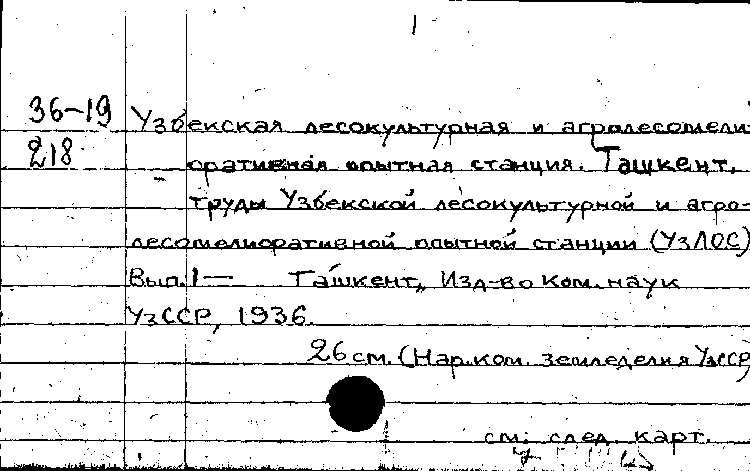 36-19 Узбекская лесокультурная и агролесомели-
218 оративная опытная станция. Ташкент.
Труды Узбекской лесокультурной и агро-
лесомелиоративной опытной станции (УзЛОС)
Вып. 1 — Ташкент, Изд-во Ком. наук
УзССР, 1936.
26 см. (Нар. ком. земледелия УзССР)
см. след. карт.